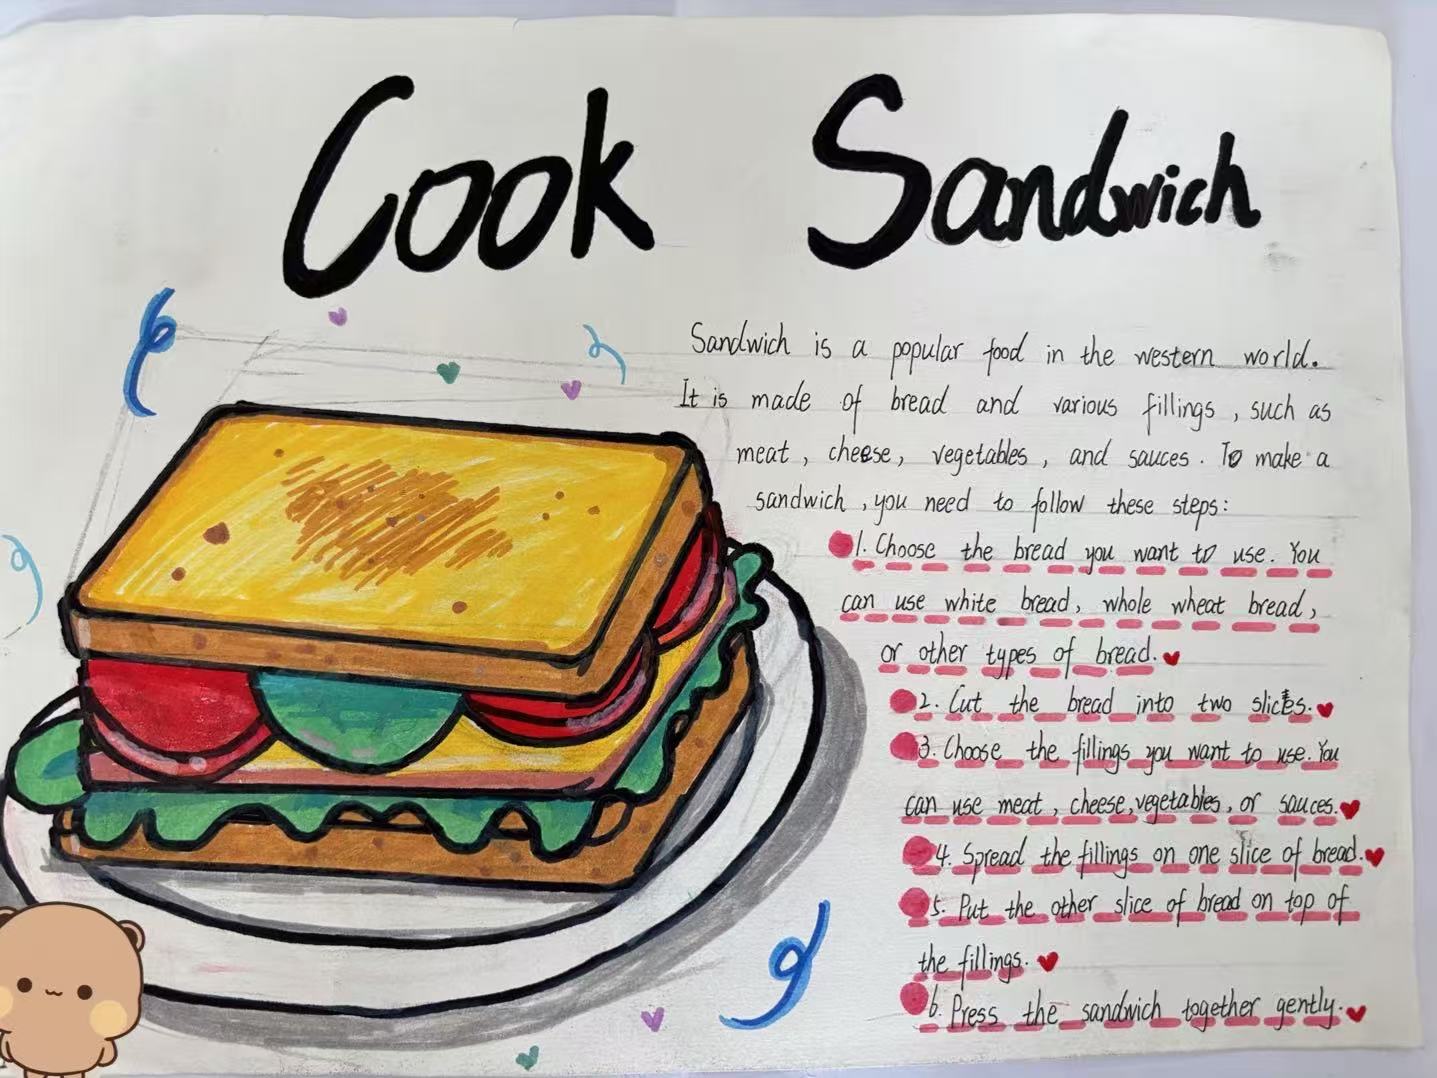 Cook Sandwich
Sandwich is a popular food in the western world.
It is made of bread and various fillings, such as
meat, cheese, vegetables, and sauces. To make a
sandwich, you need to follow these steps:
1. Choose the bread you want to use. You
can use white bread, whole wheat bread,
or other types of bread.
2. Cut the bread into two slices.
3. Choose the fillings you want to use. You
can use meat, cheese, vegetables, or sauces.
4. Spread the fillings on one slice of bread.
5. Put the other slice of bread on top of
the fillings.
6. Press the sandwich together gently.